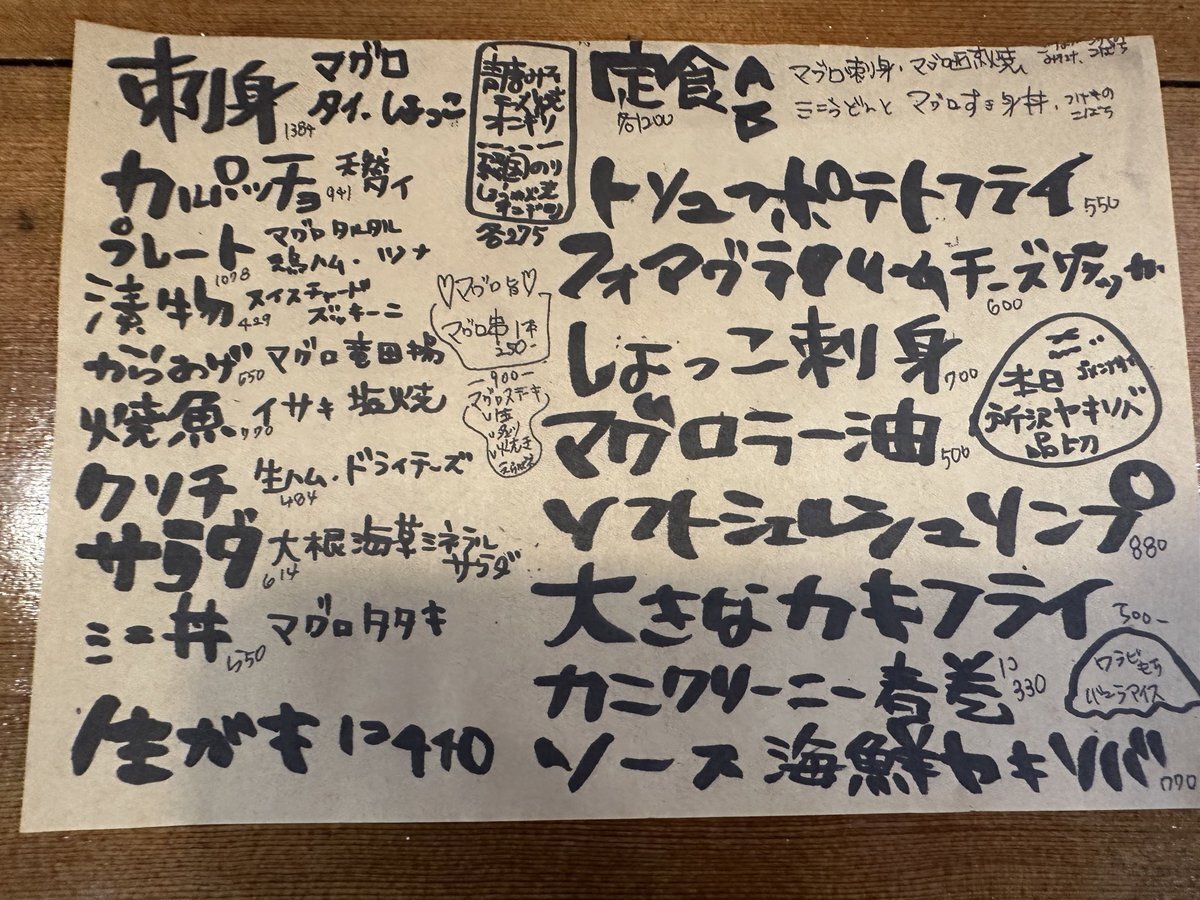 刺身 マグロ
タイ、しょっこ
1384
カルパッチョ 天然
941 タイ
プレート マグロタルタル
1078 鶏ハム・ツナ
漬物 スイスチャード
429 ズッキーニ
からあげ 650 マグロ竜田揚
焼魚 770 イサキ塩焼
クソチ 生ハム・ドライチーズ
484
サラダ 大根海草ミネラル
614 サラダ
ミニ丼 マグロタタキ
550
生がき 1コ440
青唐みそ
チーズ焼
オニギリ
韓国のり
しょうゆ焼
オニギリ
各275
♡マグロ旨♡
マグロ串1本
250-
-900-
マグロステキ
生
炙り
焼き
定食 A マグロ刺身・マグロ西京焼
各1200 B ミニうどんと マグロすき身丼、つけもの
こばち
トリュフポテトフライ 550
フォアグラクリームチーズクラッカ
600
しょっこ刺身 700
マグロラー油 500
ソフトシェルシュリンプ
880
大きなカキフライ 500-
カニクリーミー春巻 1コ
330
ソース海鮮ヤキソバ 770
本日
所沢ヤキソバ
品切
ワラビもち
バニラアイス